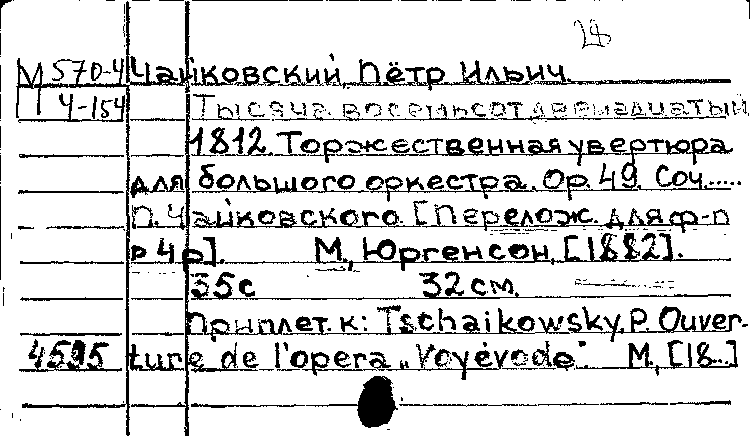 М 570-4 Чайковский, Пётр Ильич.
4-154 Тысяча восемьсот двенадцатый
1812. Торжественная увертюра
для большого оркестра. Op. 49. Соч.....
П. Чайковского. [Перелож. для ф-п
в 4 р]. М., Юргенсон, [1882].
35 с 32 см.
Приплет. к: Tschaikowsky, P. Ouver-
4595 ture de l'opera „Voyévode". М., [18..]